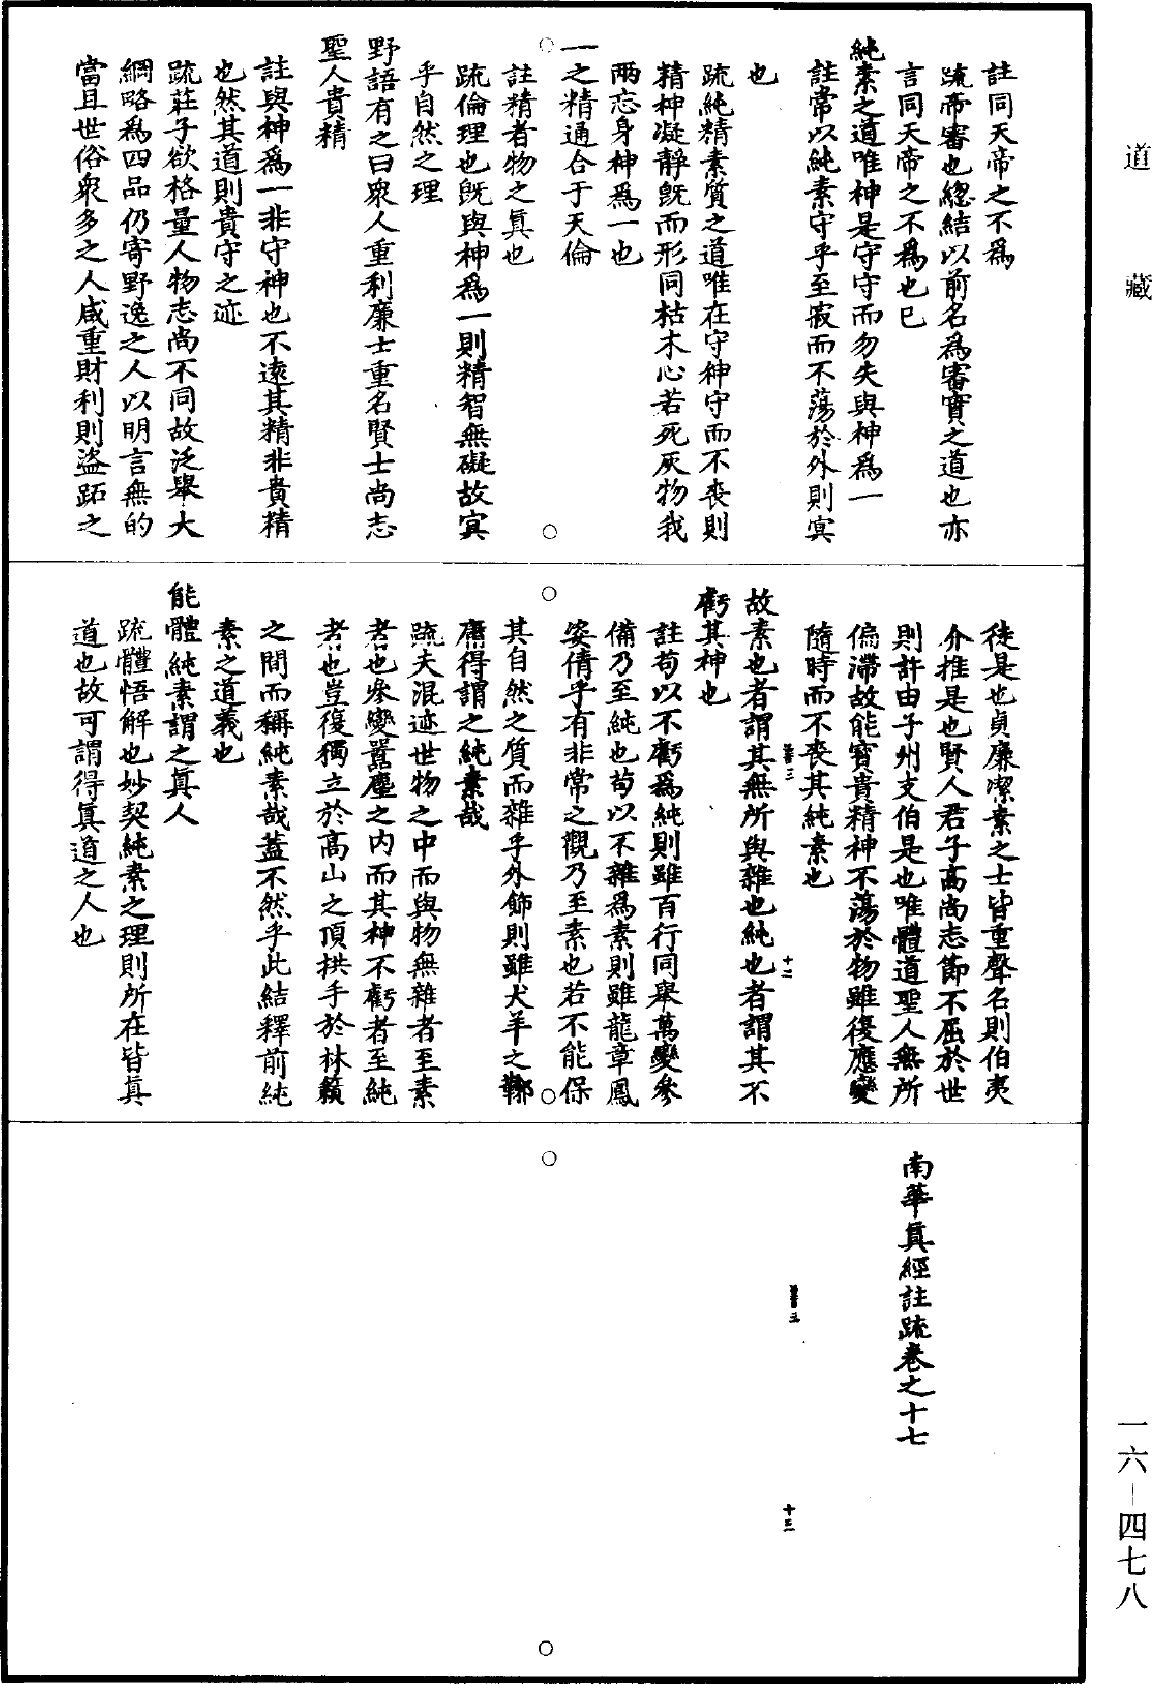 道藏
註同天帝之不爲
疏帝審也總結以前名爲審實之道也亦
言同天帝之不爲也巳
純素之道唯神是守守而勿失與神爲一
註常以純素守乎至寂而不蕩於外則冥
也
疏純精素質之道唯在守神守而不喪則
精神凝靜既而形同枯木心若死灰物我
兩忘身神爲一也
一之精通合于天倫
註精者物之眞也
疏倫理也既與神爲一則精智無礙故冥
乎自然之理
野語有之曰衆人重利廉士重名賢士尚志
聖人貴精
註與神爲一非守神也不遠其精非貴精
也然其道則貴守之迹
疏莊子欲格量人物志尚不同故泛舉大
綱略爲四品仍寄野逸之人以明言無的
當且世俗衆多之人咸重財利則盜跖之
徒是也貞廉潔素之士皆重聲名則伯夷
介推是也賢人君子高尚志節不屈於世
則許由子州支伯是也唯體道聖人無所
偏滯故能寶貴精神不蕩於物雖復應變
隨時而不喪其純素也
十二
故素也者謂其無所與雜也純也者謂其不
虧其神也
註苟以不虧爲純則雖百行同舉萬變參
備乃至純也苟以不雜爲素則雖龍章鳳
姿倩乎有非常之觀乃至素也若不能保
其自然之質而雜乎外飾則雖犬羊之鞹
庸得謂之純素哉
疏夫混迹世物之中而與物無雜者至素
者也參變囂塵之內而其神不虧者至純
者也豈復獨立於高山之頂拱手於林籟
之間而稱純素哉蓋不然乎此結釋前純
素之道義也
能體純素謂之眞人
疏體悟解也妙契純素之理則所在皆眞
道也故可謂得眞道之人也
南華眞經註疏卷之十七
十三
一六-四七八